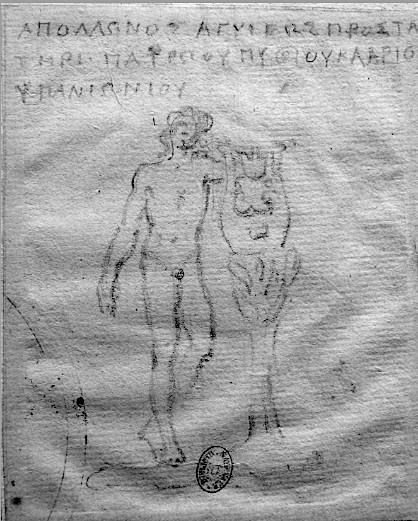 ΑΠΟΛΛΩΝΟΣ ΑΓΥΙΕΩΣ ΠΡΟΣΤΑ
ΠΑΤΡΩΟΥ ΠΥΘΙΟΥ ΚΛΑΡΙΟ
Υ ΠΑΝΙΩΝΙΟΥ